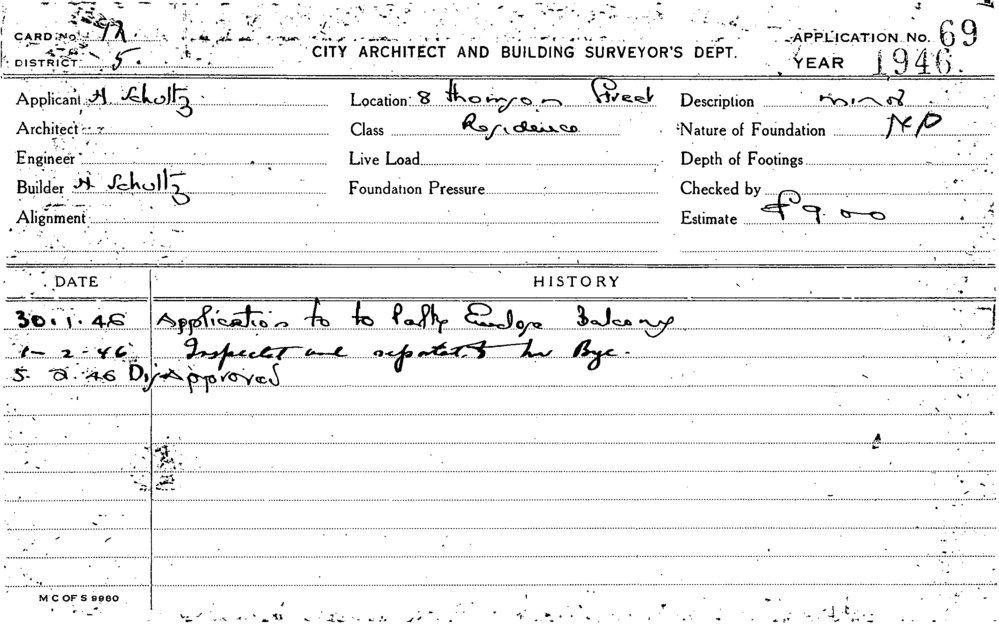 CARD No.
DISTRICT 5.
CITY ARCHITECT AND BUILDING SURVEYOR'S DEPT.
APPLICATION No. 69
YEAR 1946.
Applicant H Schultz
Location 8 Thomson Street
Description minor
Architect
Class Residence
Nature of Foundation
Engineer
Live Load
Depth of Footings
Builder H Schultz
Foundation Pressure
Checked by
Alignment
Estimate £9.00
DATE HISTORY
30.1.46 Application to to Partly Balcony
1-2-46 Inspected and reported to Mr Bye.
5.2.46 Approved
M C OF S 9980